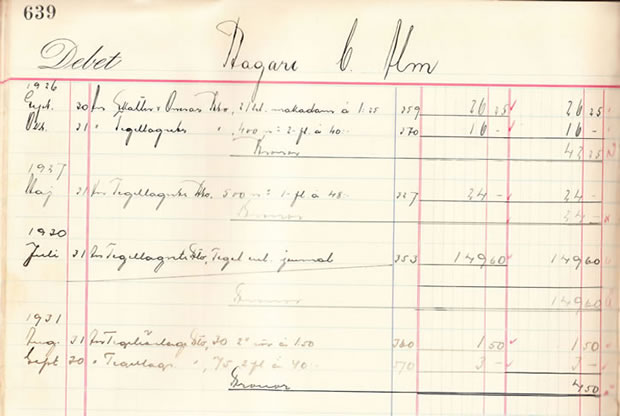 639
Debet Bagare C. Alm
1926
Sept. 30 Kto, 21 hl. makadam à 1.25 259 26 25 26 25
Okt. 31 " Tegellagrets " , 400 2-fl. à 40.- 270 16 - 16 -
Kronor 42 25
1927
Maj 31 Tegellagrets Kto. 500 1-fl à 48.- 24 - 24 -
Kronor 24 -
1930
Juli 31 Tegellagrets Kto, Tegel enl. journal 253 149,60 149,60
Kronor 149,60
1931
Aug. 31 Kto, 30 2" rör à 1.50 260 1 50 1 50
Sept 30 " Tegellagr. " , 75 2 fl à 40.- 270 3 - 3 -
Kronor 4 50